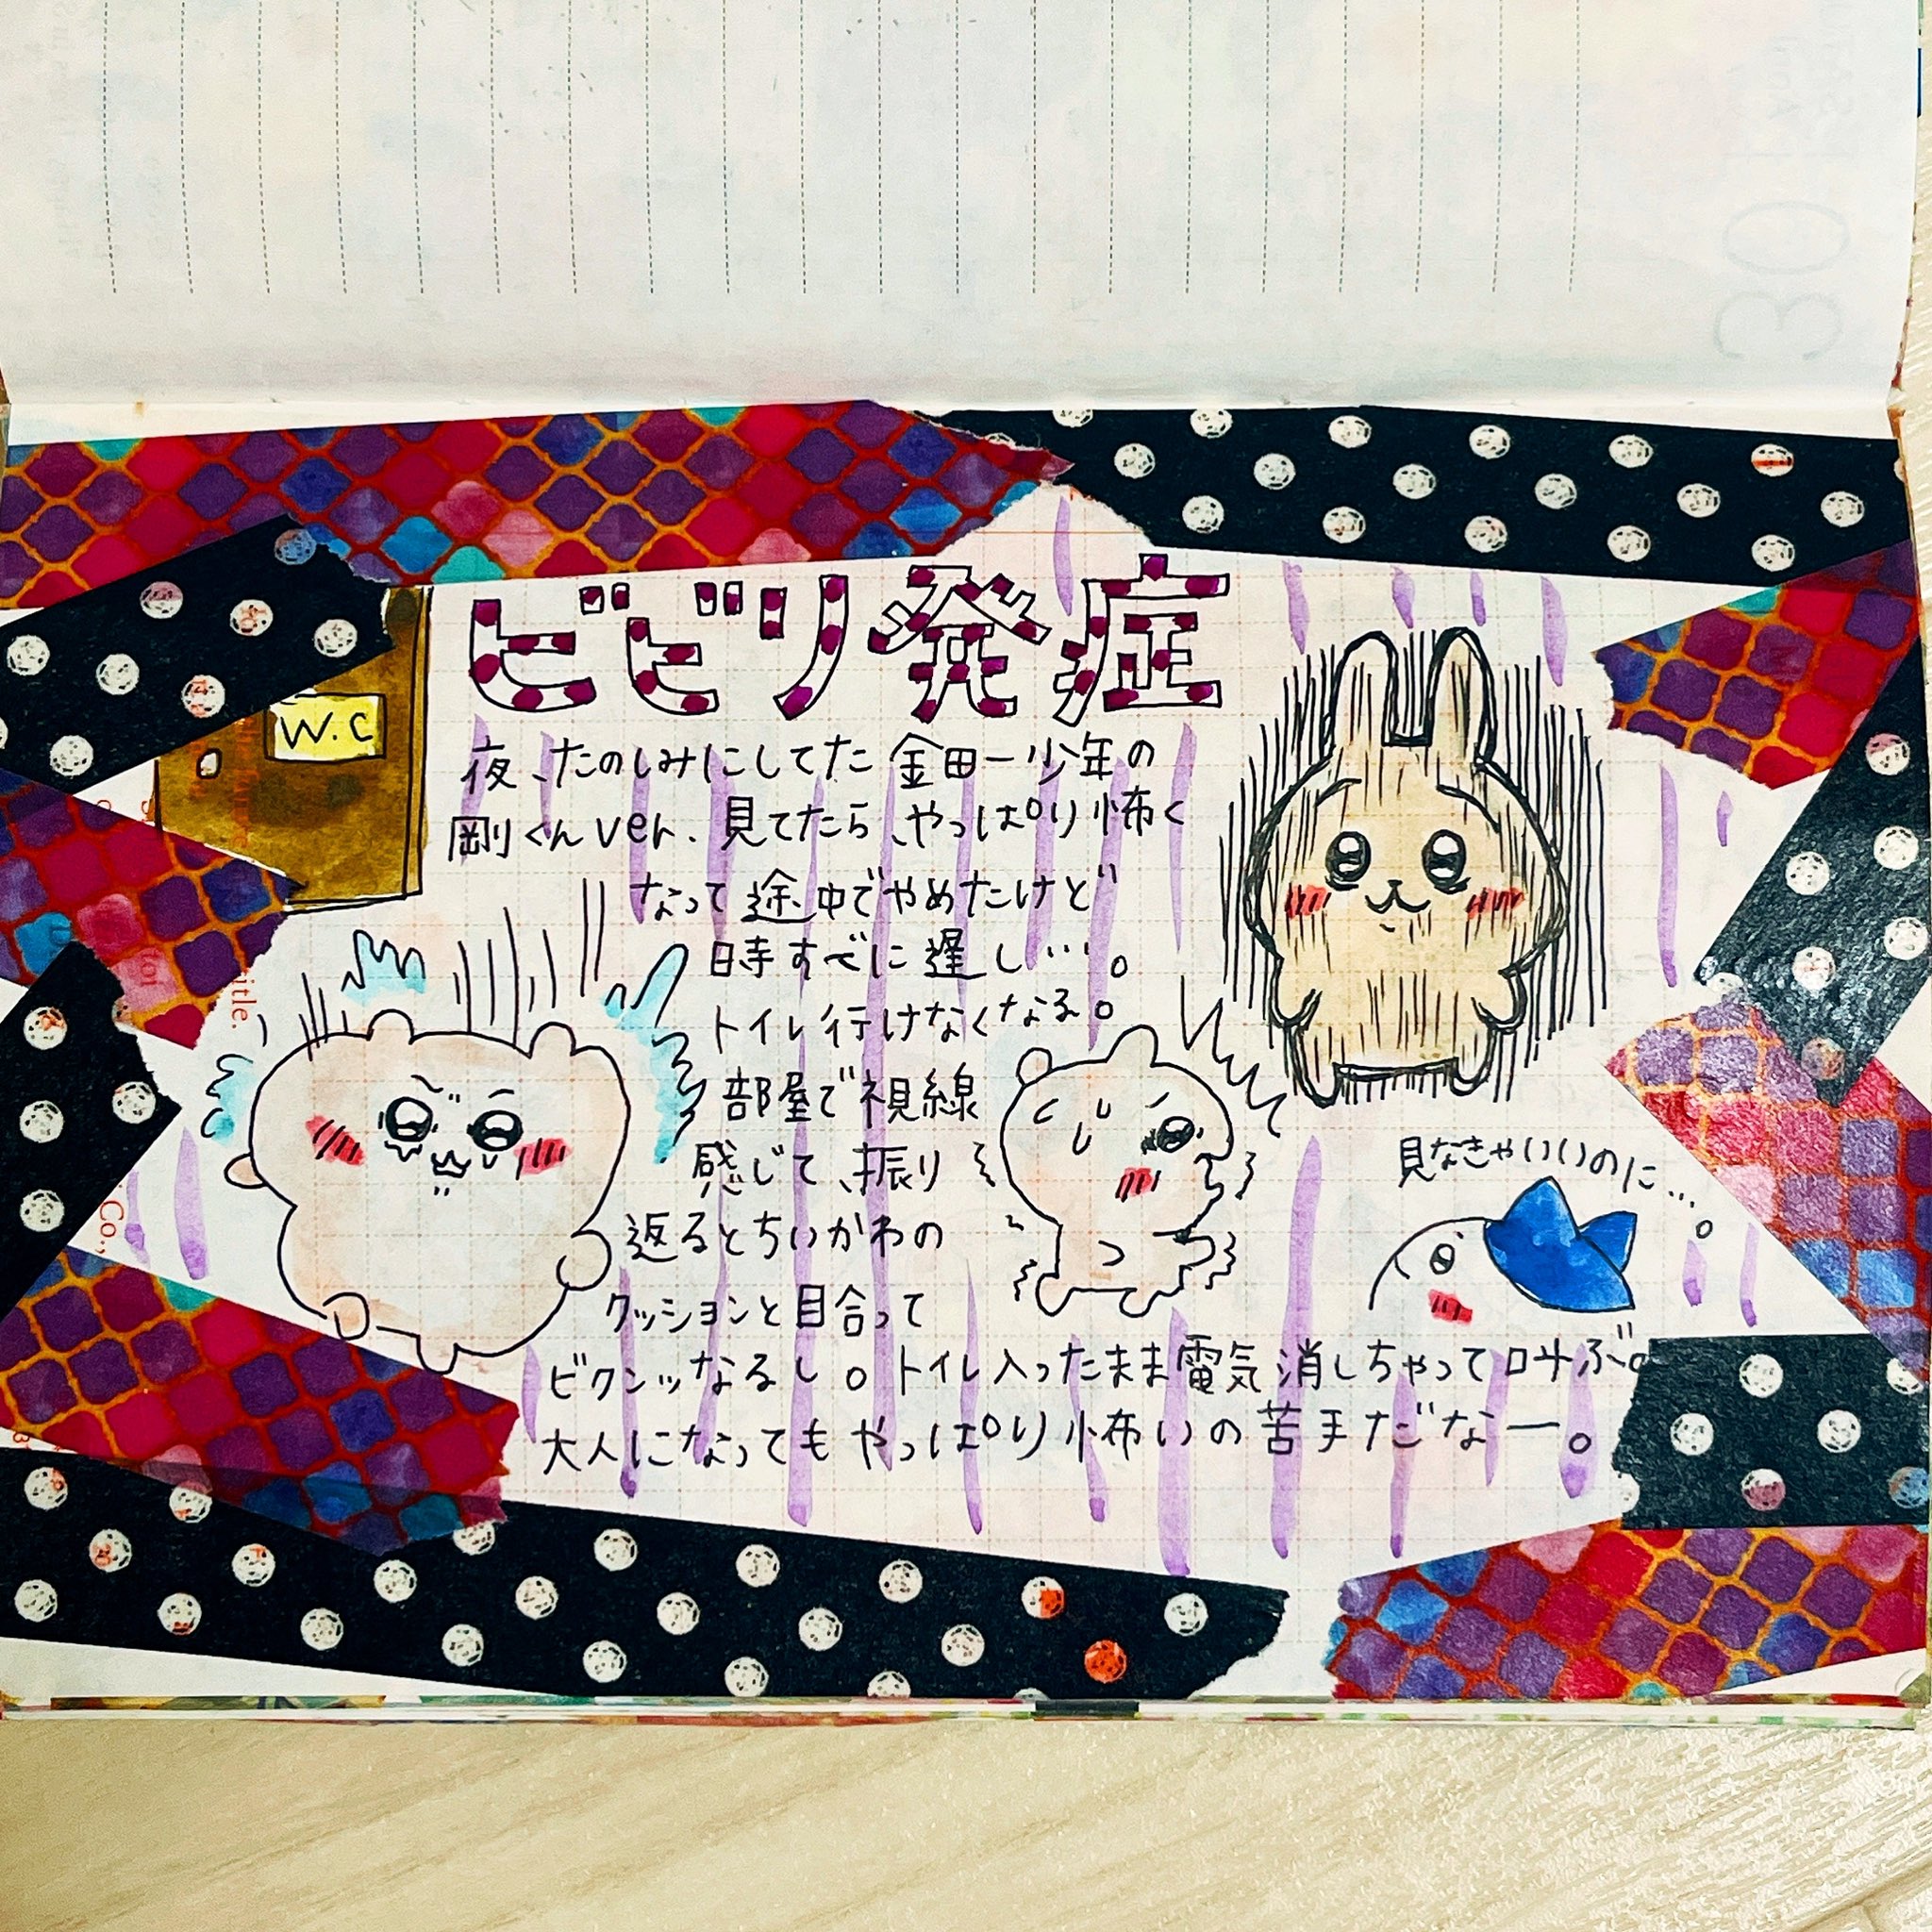 ビビリ発症
W.C
夜、たのしみにしてた金田一少年の
剛くんver.見てたら、やっぱり怖く
なって途中でやめたけど
時すでに遅し…。
トイレ行けなくなる。
部屋で視線
感じて、振り
返るとちいかわの
クッションと目合って
ビクンッなるし。トイレ入ったまま電気消しちゃって叫ぶ。
大人になってもやっぱり怖いの苦手だなー。
見なきゃいいのに…。
itle.
Co.,
30